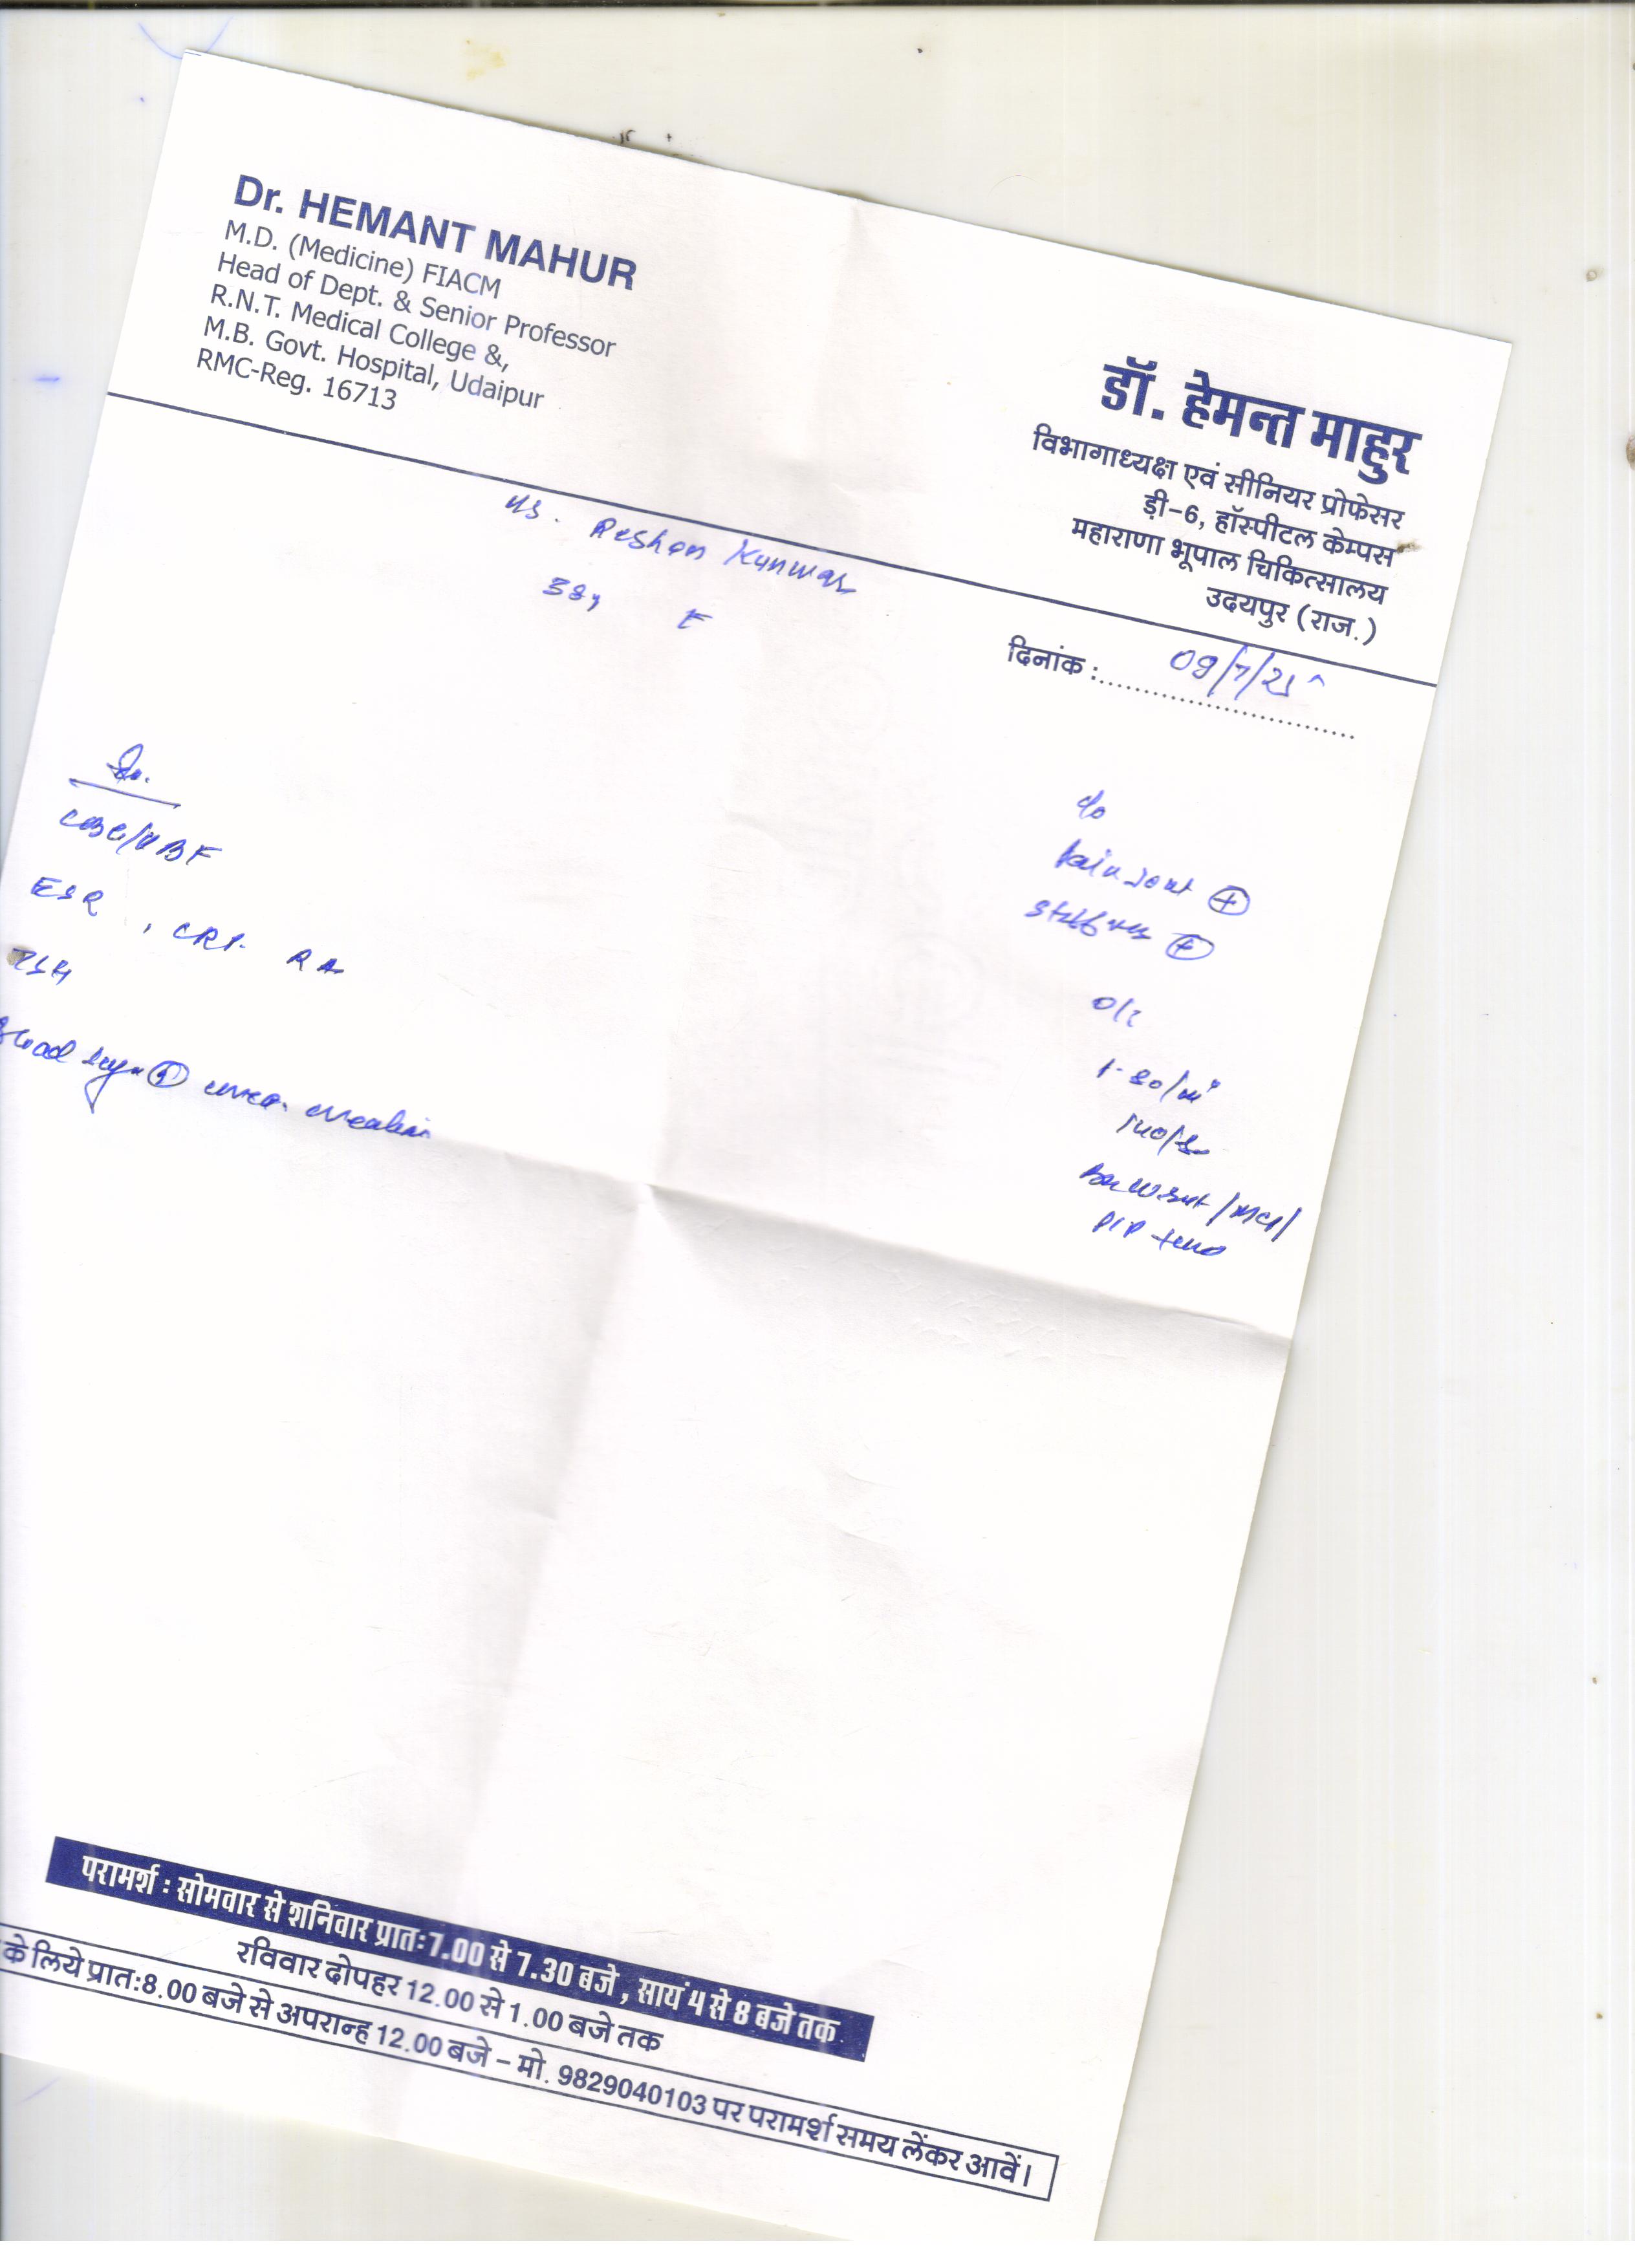 Dr. HEMANT MAHUR
M.D. (Medicine) FIACM
Head of Dept. & Senior Professor
R.N.T. Medical College &,
M.B. Govt. Hospital, Udaipur
RMC-Reg. 16713
डॉ. हेमन्त माहुर
विभागाध्यक्ष एवं सीनियर प्रोफेसर
ड़ी-6, हॉस्पीटल केम्पस
महाराणा भूपाल चिकित्सालय
उदयपुर (राज.)
Kunwar
38y F
दिनांक :
CBC/PBF
ESR, CRP RA
TSH
Blood urea
c/o
Pain Joint +
Stiffness +
o/e
80/m
140/80
wrist/MCP/
PIP
परामर्श : सोमवार से शनिवार प्रातः7.00 से 7.30 बजे, सायं 4 से 8 बजे तक
रविवार दोपहर 12.00 से 1.00 बजे तक
के लिये प्रात:8.00 बजे से अपरान्ह 12.00 बजे – मो. 9829040103 पर परामर्श समय लेंकर आवें।